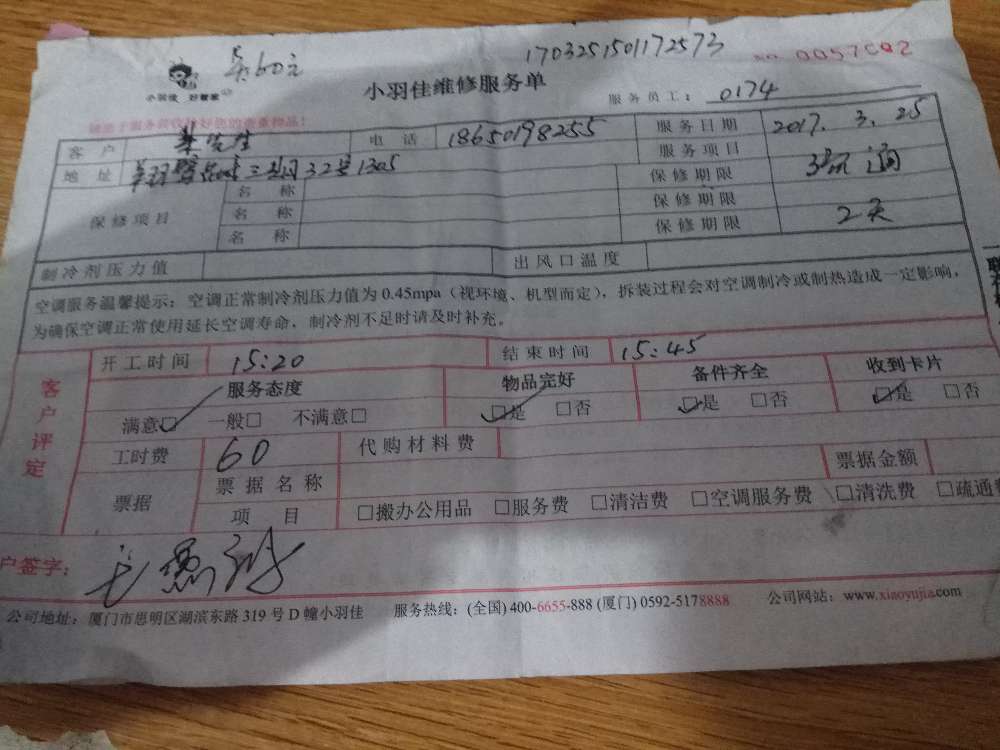 1703251501172573
60元
小羽佳 好管家
小羽佳维修服务单
服务员工: 0174
客户 先生 电话 18650198255 服务日期 2017. 3. 25
服务项目
地址 32号1305 保修期限 疏通
保修项目 名称 保修期限
名称 保修期限 2天
名称
制冷剂压力值 出风口温度
空调服务温馨提示：空调正常制冷剂压力值为0.45mpa（视环境、机型而定），拆装过程会对空调制冷或制热造成一定影响，
为确保空调正常使用延长空调寿命，制冷剂不足时请及时补充。
客户评定
开工时间 15:20 结束时间 15:45
服务态度 物品完好 备件齐全 收到卡片
满意□ 一般□ 不满意□ □是 □否 □是 □否 □是 □否
工时费 60 代购材料费
票据 票据名称 票据金额
项目 □搬办公用品 □服务费 □清洁费 □空调服务费 □清洗费 □疏通费
户签字:
公司地址: 厦门市思明区湖滨东路319号D幢小羽佳 服务热线: (全国) 400-6655-888 (厦门) 0592-5178888 公司网站: www.xiaoyujia.com